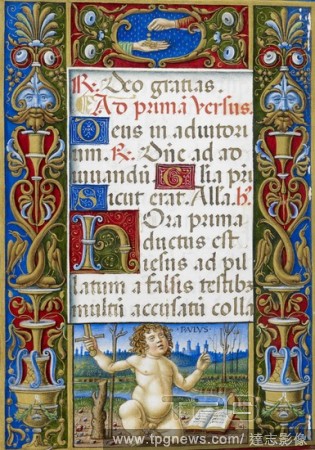 R. Deo gratias.
Ad primā versus.
Deus in adiutori
um. R. Dn̄e ad ad
iuuandū. Gl̄ia pri
Sicut erat. Alla. h
Hora prima
ductus est
iesus ad pil
latum a falsis testibꝫ
multi accusati colla
www.tpgnews.com/ 達志影像